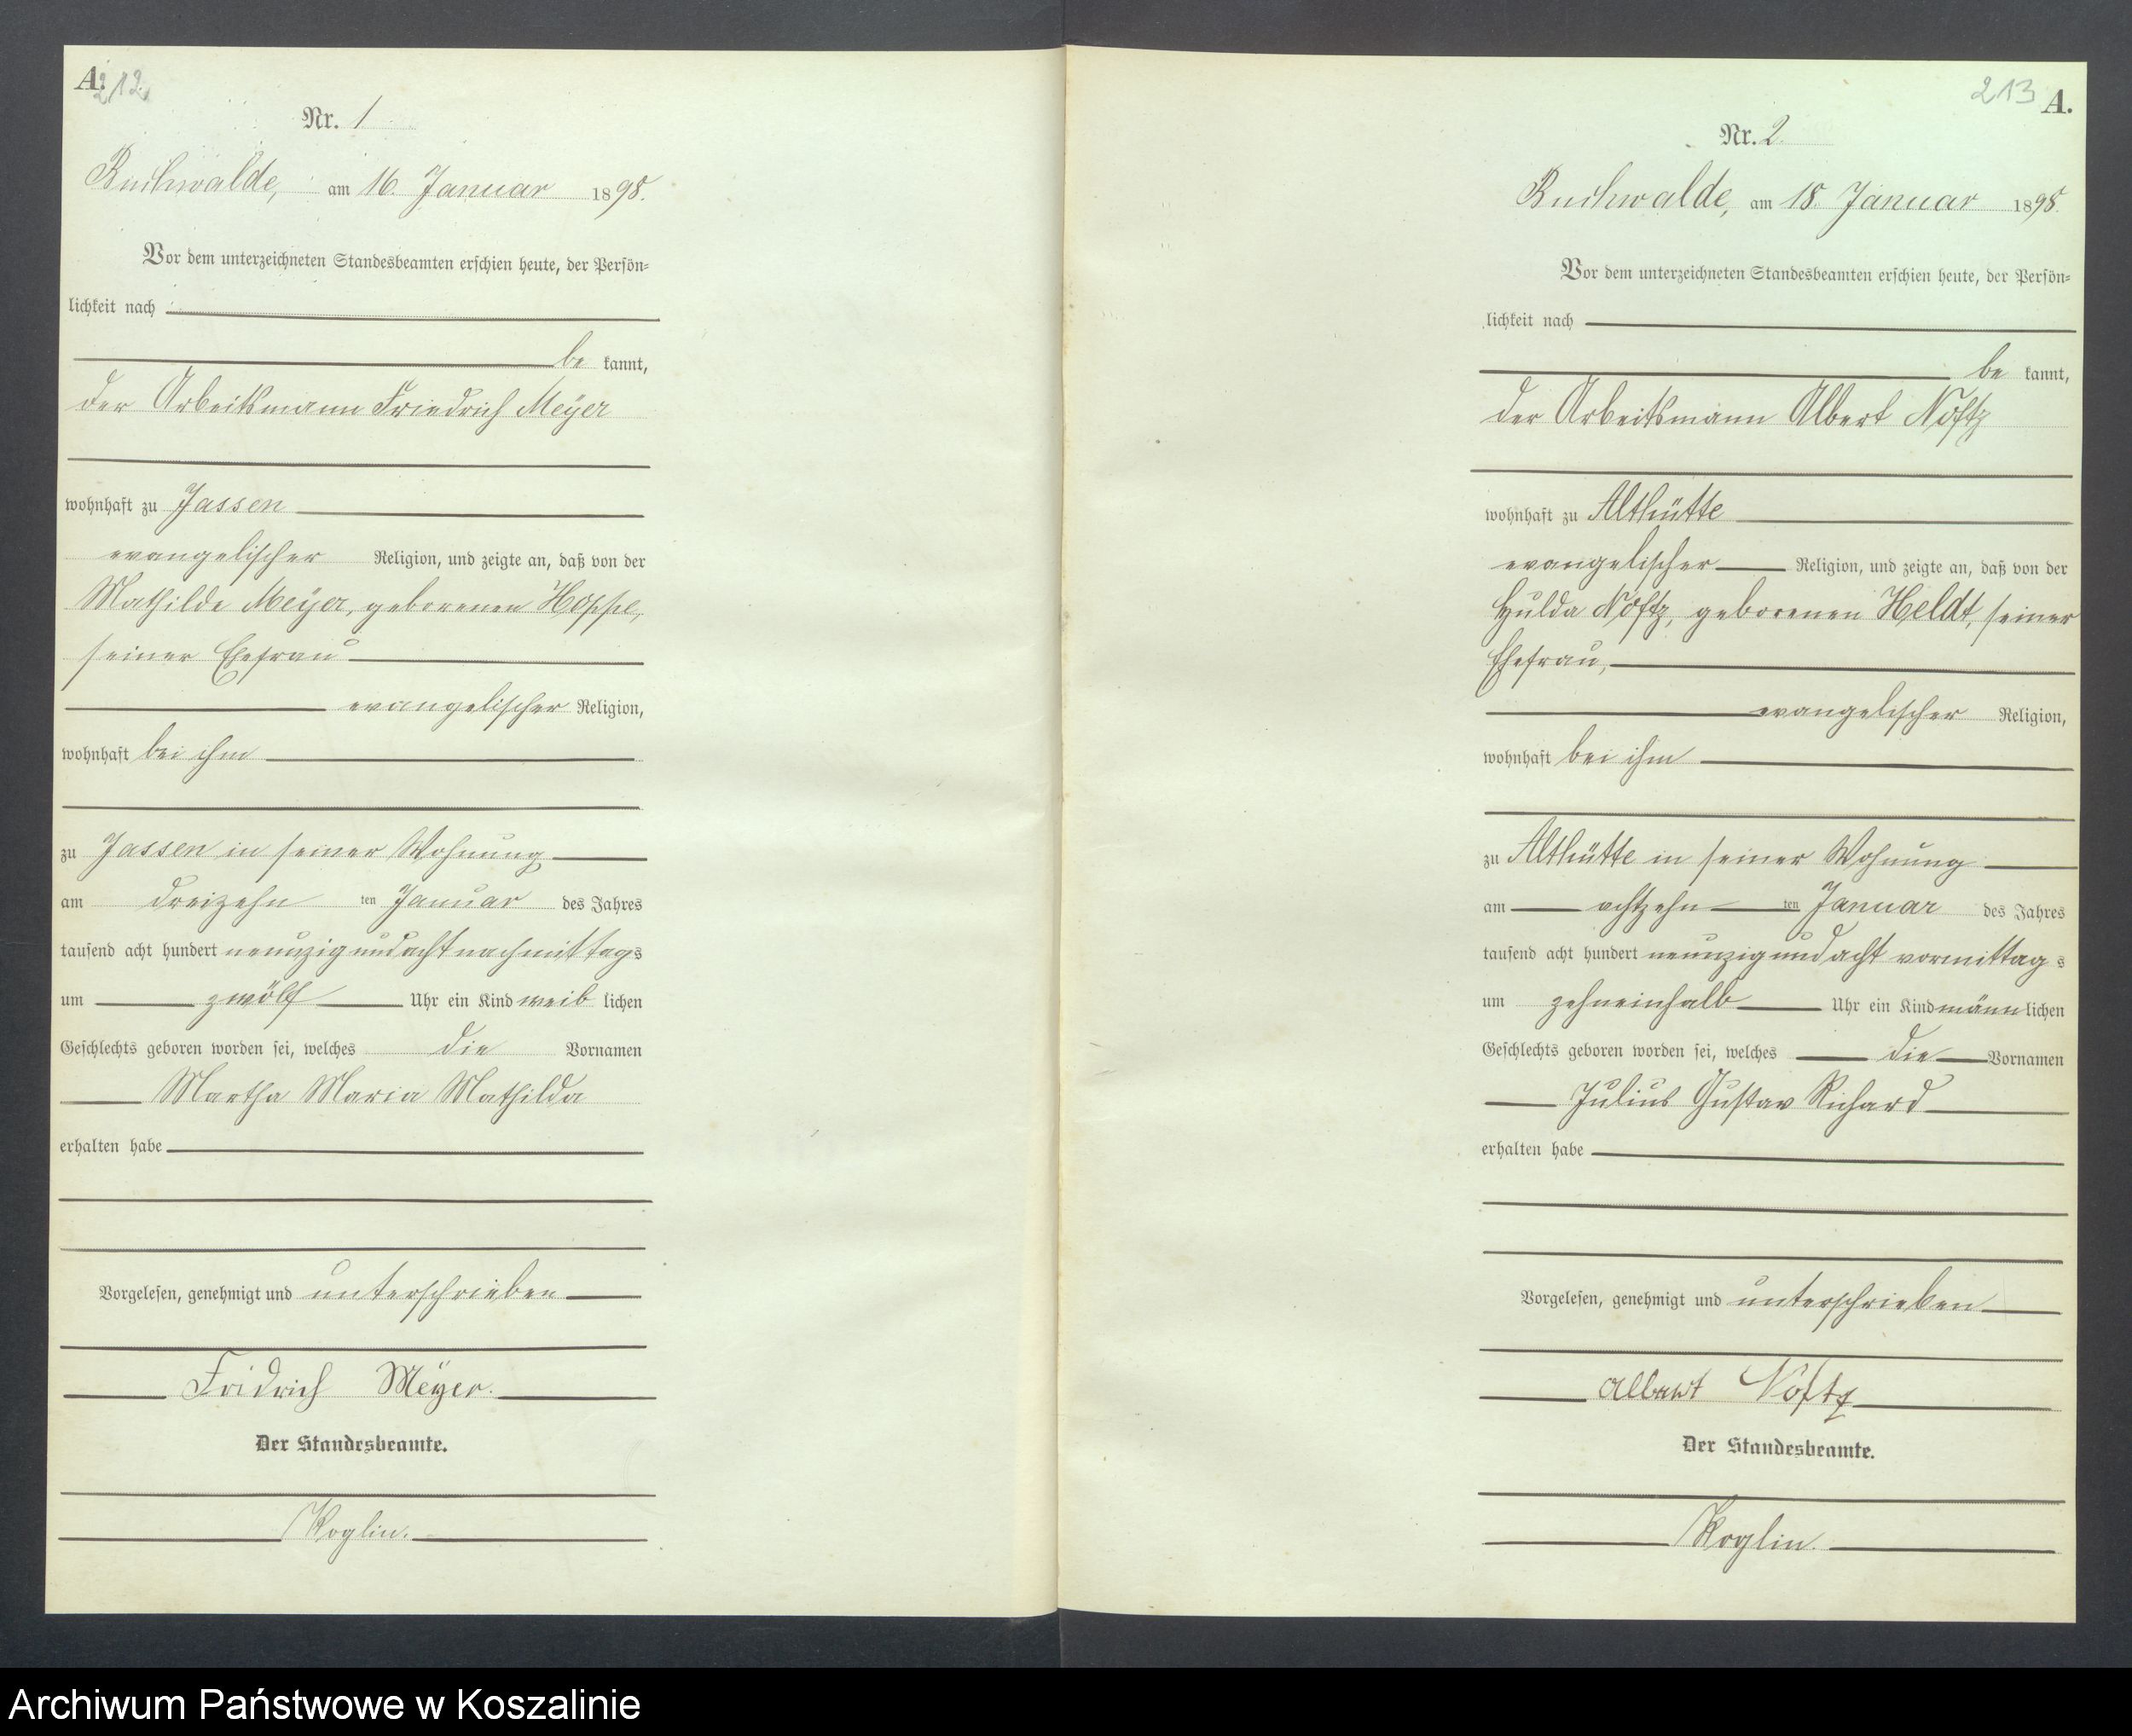 A.
212.
Nr. 1
Buchwalde, am 16. Januar 1898.
Vor dem unterzeichneten Standesbeamten erschien heute, der Persön-
lichkeit nach
be kannt,
der Arbeitsmann Friedrich Meyer
wohnhaft zu Jassen
evangelischer Religion, und zeigte an, daß von der
Mathilde Meyer, geborenen Hoppe,
seiner Ehefrau
evangelischer Religion,
wohnhaft bei ihm
zu Jassen in seiner Wohnung
am dreizehn ten Januar des Jahres
tausend acht hundert neunzig und acht nachmittags
um zwölf Uhr ein Kind weib lichen
Geschlechts geboren worden sei, welches die Vornamen
Martha Maria Mathilda
erhalten habe
Vorgelesen, genehmigt und unterschrieben
Fridrich Meyer.
Der Standesbeamte.
Koglin.
213 A.
Nr. 2.
Buchwalde, am 18. Januar 1898.
Vor dem unterzeichneten Standesbeamten erschien heute, der Persön-
lichkeit nach
be kannt,
der Arbeitsmann Albert Noftz
wohnhaft zu Althütte
evangelischer Religion, und zeigte an, daß von der
Hulda Noftz, geborenen Heldt, seiner
Ehefrau,
evangelischer Religion,
wohnhaft bei ihm
zu Althütte in seiner Wohnung
am achtzehn ten Januar des Jahres
tausend acht hundert neunzig und acht vormittag s
um zehneinhalb Uhr ein Kind männ lichen
Geschlechts geboren worden sei, welches die Vornamen
Julius Gustav Richard
erhalten habe
Vorgelesen, genehmigt und unterschrieben
Albert Noftz
Der Standesbeamte.
Koglin.
Archiwum Państwowe w Koszalinie